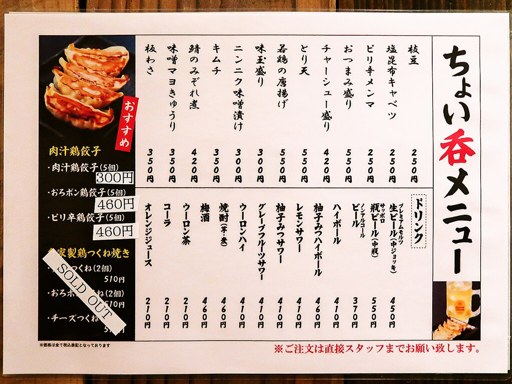 ちょい呑メニュー
枝豆 250円
塩昆布キャベツ 250円
ピリ辛メンマ 250円
おつまみ盛り 350円
チャーシュー盛り 420円
とり天 550円
若鶏の唐揚げ 500円
味玉盛り 300円
ニンニク味噌漬け 300円
キムチ 300円
鯖のみぞれ煮 420円
味噌マヨきゅうり 350円
板わさ 350円
ドリンク
プレミアムモルツ
生ビール(中ジョッキ) 450円
サッポロ
瓶ビール(中瓶) 550円
ノンアルコール
ビール 370円
ハイボール 410円
柚子みつハイボール 460円
レモンサワー 410円
柚子みつサワー 410円
グレープフルーツサワー 410円
ウーロンハイ 410円
焼酎(芋・麦) 460円
梅酒 460円
ウーロン茶 210円
コーラ 210円
オレンジジュース 210円
おすすめ
肉汁鶏餃子
・肉汁鶏餃子(5個)
300円
・おろポン鶏餃子(5個)
460円
・ピリ辛鶏餃子(5個)
460円
自家製鶏つくね焼き
つくね(2個)
510円
・おろポ つくね(2個)
510円
・チーズつくね
SOLD OUT
※価格は全て税込表記となっております
※ご注文は直接スタッフまでお願い致します。